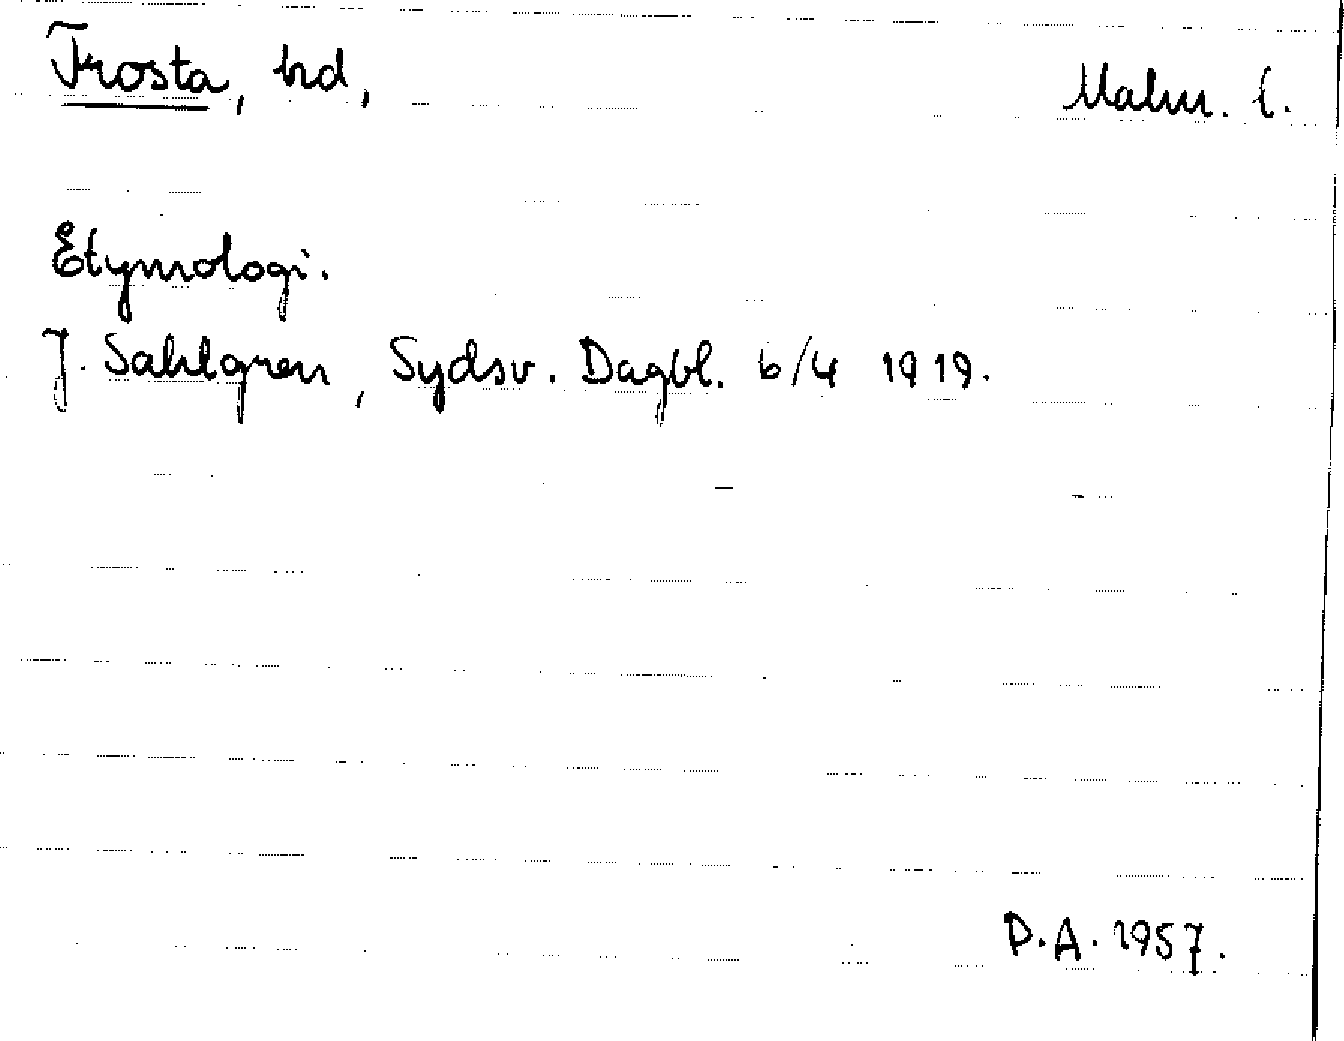 Frosta, hd, Malm. l.
Etymologi.
J. Sahlgren, Sydsv. Dagbl. 6/4 1919.
D.A. 1957.